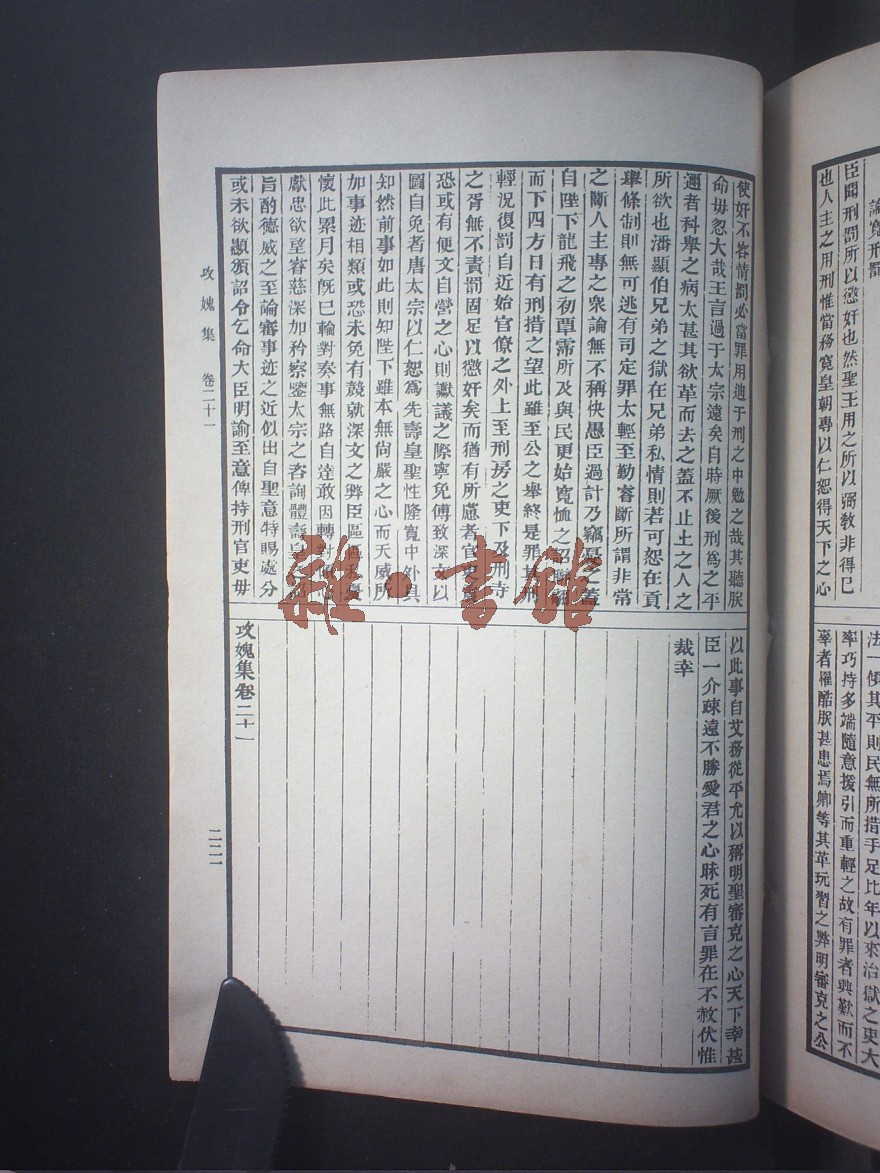 論寬刑罰
臣聞刑罰所以懲奸也然聖王用之所以弼敎非得已
也人主之用刑惟當務寬皇朝專以仁恕得天下之心
法一傾其平則民無所措手足比年以來治獄之吏大
率巧持多端隨意援引而重輕之故有罪者興歎而不
辜者罹酷朕甚患焉卿等其革玩習之弊明審克之公
使奸不容情罰必當罪用迪于刑之中勉之哉其聽朕
命毋忽大哉王言過于太宗遠矣自時厥後刑爲之平
邇者科舉之病太甚其欲革而去之蓋不止土之人之
所欲也潘顯伯兄弟之獄在兄弟私情則若可恕在貢
舉條制則無可逃有司定罪太輕至勤睿斷所謂非常
之斷人主專之衆論無不稱快愚臣過計乃竊憂之蓋
自陛下龍飛之初覃霈所及與民更始寬恤之詔
而下四方日有刑措之望此雖至公之舉終是罪其刑
輕況復罰自近始官僚之外上至刑房之吏下及刑寺
之胥無不責罰固足以懲奸矣而猶有所慮者官吏
恐或有便文自營之心則讞議之際寧免傅致深文以
圖自免者唐太宗以仁恕爲先壽皇聖性隆寬中外具
知然前事如此則知陛下雖本無尙嚴之心而天威所
加事迹相類或恐未免有競就深文之弊臣區區
懷此累月矣旣已輪對奏事無路自達敢因轉對
獻忠欲望睿慈深加矜察鑒太宗之咨詢體壽皇
旨酌德威之至論審事迹之近似出自聖意特賜處分
或未欲顯頒詔令乞命大臣明諭至意俾持刑官吏毋
以此事自艾務從平允以稱明聖審克之心天下幸甚
臣一介疎遠不勝愛君之心昧死有言罪在不赦伏惟
裁幸
攻媿集卷二十一
攻媿集 卷二十一
二二一
雜·書館